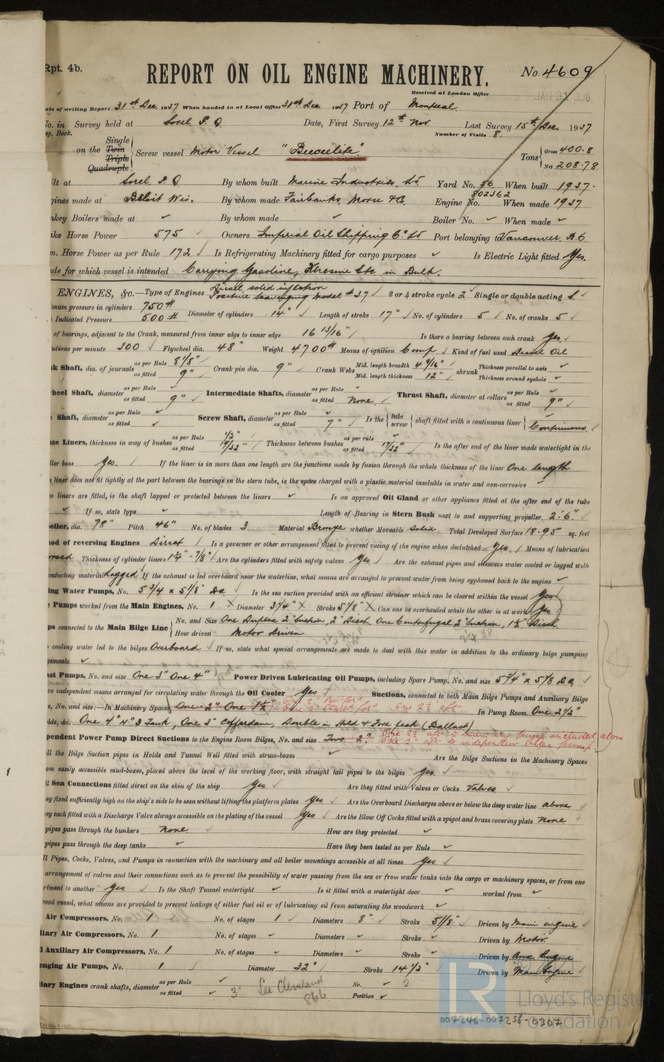 Rpt. 4b.
REPORT ON OIL ENGINE MACHINERY.
No. 4609
Received at London Office
of writing Report 31st Dec. 1937 When handed in at Local Office 31st Dec. 1937 Port of Montreal
No. in Survey held at Sorel P.Q. Date, First Survey 12th Nov. Last Survey 15th Dec. 1937
Reg. Book. Number of Visits 8.
on the Single Twin Triple Quadruple Screw vessel Motor Vessel Tons Gross 400.8 Net 208.78
Built at Sorel P.Q. By whom built Marine Industries, Ltd Yard No. 56 When built 1937.
Engines made at Beloit Wis. By whom made Fairbanks, Morse & Co. Engine No. 802362 When made 1937
Donkey Boilers made at ✓ By whom made ✓ Boiler No. ✓ When made ✓
Brake Horse Power 575 Owners Imperial Oil Shipping Co. Ltd Port belonging to Vancouver B.C.
Nom. Horse Power as per Rule 172 Is Refrigerating Machinery fitted for cargo purposes ✓ Is Electric Light fitted Yes
Trade for which vessel is intended Carrying Gasoline, Kerosine Etc in Bulk.
ENGINES, &c.—Type of Engines Diesel solid injection Model #37 2 or 4 stroke cycle 2 Single or double acting S.
Maximum pressure in cylinders 750# Diameter of cylinders 14" Length of stroke 17" No. of cylinders 5 No. of cranks 5
Mean Indicated Pressure
of bearings, adjacent to the Crank, measured from inner edge to inner edge 16 13/16" Is there a bearing between each crank Yes
Revolutions per minute 300 Flywheel dia. 48" Weight 4700# Means of ignition Comp. Kind of fuel used Diesel Oil
Crank Shaft, dia. of journals as per Rule 8 1/8" as fitted 9" Crank pin dia. 9" Crank Webs Mid. length breadth Mid. length thickness shrunk Thickness parallel to axis ✓ Thickness around eyehole ✓
Wheel Shaft, diameter as per Rule as fitted 9" Intermediate Shafts, diameter as per Rule as fitted None Thrust Shaft, diameter at collars as per Rule as fitted 9"
Shaft, diameter as per Rule as fitted Screw Shaft, diameter as per Rule as fitted 7" Is the tube screw shaft fitted with a continuous liner Continuous
Liners, thickness in way of bushes as per Rule 1/2" as fitted 17/32" Thickness between bushes as per Rule as fitted 17/32" Is the after end of the liner made watertight in the
boss Yes. If the liner is in more than one length are the junctions made by fusion through the whole thickness of the liner One length
liner does not fit tightly at the part between the bearings in the stern tube, is the space charged with a plastic material insoluble in water and non-corrosive ✓
liners are fitted, is the shaft lapped or protected between the liners ✓ Is an approved Oil Gland or other appliance fitted at the after end of the tube
✓ If so, state type ✓ Length of Bearing in Stern Bush next to and supporting propeller 2'-6"
Propeller, dia. 78" Pitch 46" No. of blades 3 Material Bronze whether Moveable Solid. Total Developed Surface 18.95 sq. feet
Method of reversing Engines Direct Is a governor or other arrangement fitted to prevent racing of the engine when declutched Yes Means of lubrication
Forced Thickness of cylinder liners Are the cylinders fitted with safety valves Yes Are the exhaust pipes and silencers water cooled or lagged with
conducting material Lagged If the exhaust is led overboard near the waterline, what means are arranged to prevent water from being syphoned back to the engine ✓
Cooling Water Pumps, No. 5 3/4" x 5 1/8" D.A. Is the sea suction provided with an efficient strainer which can be cleared within the vessel Yes
Pumps worked from the Main Engines, No. 1 Diameter 3 1/4" Stroke 5 1/8" Can one be overhauled while the other is at work Yes
Pumps connected to the Main Bilge Line No. and Size One Duplex 2" Suction, 2" Disch. One Centrifugal 2" Suction, 1 1/2" Disch.
How driven Motor driven
cooling water led to the bilges Overboard If so, state what special arrangements are made to deal with this water in addition to the ordinary bilge pumping
arrangements ✓
Ballast Pumps, No. and size One 3" One 4" Power Driven Lubricating Oil Pumps, including Spare Pump, No. and size 5 1/4" x 5 1/8 D.A.
two independent means arranged for circulating water through the Oil Cooler Yes Suctions, connected to both Main Bilge Pumps and Auxiliary Bilge
Pumps, No. and size:—In Machinery Spaces In Pump Room One 2 1/2"
Holds, &c. One 4" N° 3 Tank, One 3" Cofferdam, Double in Hold & Fore peak (Ballast)
Independent Power Pump Direct Suctions to the Engine Room Bilges, No. and size Two 2"
all the Bilge Suction pipes in Holds and Tunnel Well fitted with strum-boxes ✓ Are the Bilge Suctions in the Machinery Spaces
from easily accessible mud-boxes, placed above the level of the working floor, with straight tail pipes to the bilges Yes.
all Sea Connections fitted direct on the skin of the ship Yes Are they fitted with Valves or Cocks Valves
they fixed sufficiently high on the ship's side to be seen without lifting the platform plates Yes Are the Overboard Discharges above or below the deep water line above
they each fitted with a Discharge Valve always accessible on the plating of the vessel Yes Are the Blow Off Cocks fitted with a spigot and brass covering plate None
pipes pass through the bunkers None How are they protected ✓
pipes pass through the deep tanks ✓ Have they been tested as per Rule ✓
all Pipes, Cocks, Valves, and Pumps in connection with the machinery and all boiler mountings accessible at all times Yes
arrangement of valves and their connections such as to prevent the possibility of water passing from the sea or from water tanks into the cargo or machinery spaces, or from one
compartment to another Yes Is the Shaft Tunnel watertight ✓ Is it fitted with a watertight door ✓ worked from ✓
wood vessel, what means are provided to prevent leakage of either fuel oil or of lubricating oil from saturating the woodwork ✓
Air Compressors, No. 1 No. of stages 1 Diameters 3" Stroke 5 1/8" Driven by Main engine
Auxiliary Air Compressors, No. 1 No. of stages ✓ Diameters ✓ Stroke ✓ Driven by Motor
Auxiliary Air Compressors, No. 1 No. of stages ✓ Diameters ✓ Stroke ✓ Driven by Aux. Engine
Scavenging Air Pumps, No. 1 Diameter 32" Stroke 14 1/2" Driven by Main Engine
Auxiliary Engines crank shafts, diameter as per Rule as fitted 3" See Cleveland 866 No. Position ✓
LR Lloyd's Register Foundation
007246-007256-0307